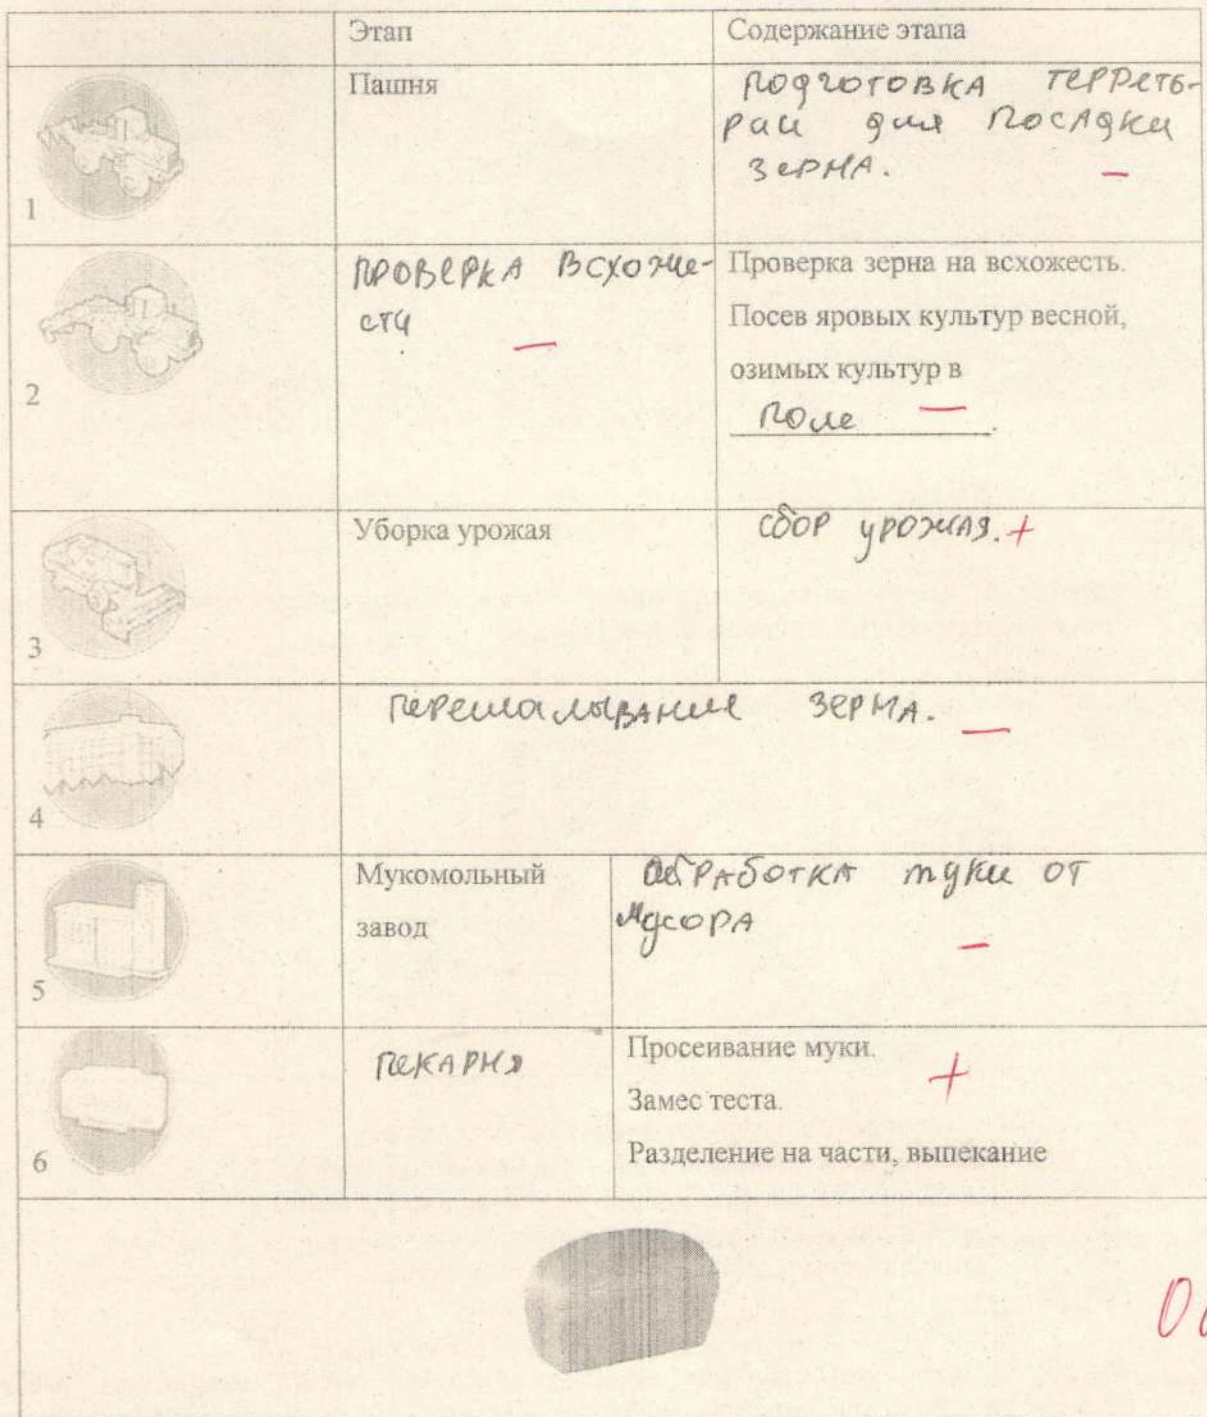 Этап Содержание этапа
Пашня подготовка террето-
рии для посадки
зерна. –
1
проверка всхоже- Проверка зерна на всхожесть.
сти – Посев яровых культур весной,
озимых культур в
2
поле – .
Уборка урожая сбор урожая. +
3
перемалывание зерна. –
4
Мукомольный обработка муки от
завод мусора –
5
пекарня Просеивание муки. +
Замес теста.
6 Разделение на части, выпекание